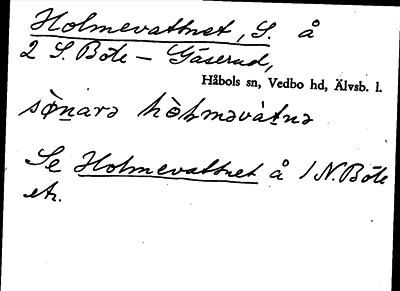 Holmevattnet, S. å
2 S. Böle – Gäserud,
Håbols sn, Vedbo hd, Älvsb. l.
sø̀ṉarə hò̤ḷməvàt̠nə
Se Holmevattnet å 1 N. Böle
etc.